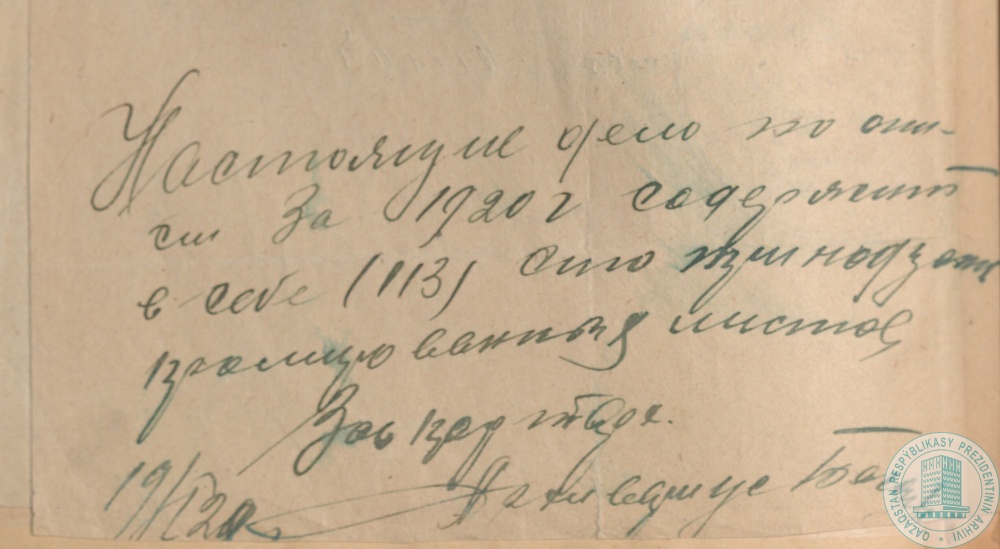 Настоящие дело по опи-
си За 1920 г содержит
в себе (113) сто тринадзать
нромированных листов,
Зав
19/I 20
QAZAQSTAN RESPÝBLIKASY PREZIDENTINIŃ ARHIVI